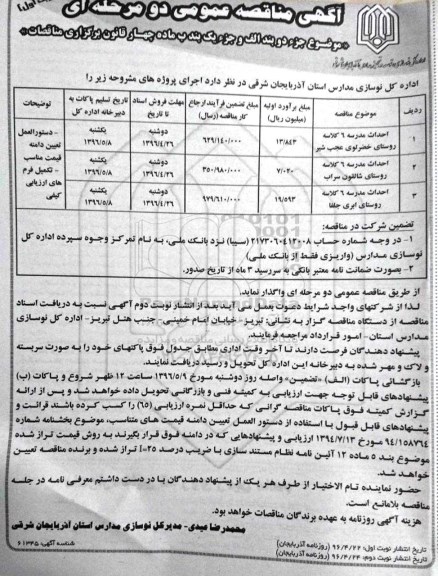 آگهی مناقصه عمومی دو مرحله ای
«موضوع جزء دو بند الف و جزء یک بند ب ماده چهار قانون برگزاری مناقصات»
اداره کل نوسازی مدارس استان آذربایجان شرقی در نظر دارد اجرای پروژه های مشروحه زیر را
ردیف موضوع مناقصه مبلغ برآورد اولیه (میلیون ریال) مبلغ تضمین فرآیند ارجاع کار مناقصه (ریال) مهلت فروش اسناد تا تاریخ تاریخ تسلیم پاکات به دبیرخانه اداره کل توضیحات
۱ احداث مدرسه ۶ کلاسه روستای خضرلوی عجب شیر ۱۳/۸۴۳ ۶۲۹/۱۴۰/۰۰۰ دوشنبه ۱۳۹۶/۴/۲۶ یکشنبه ۱۳۹۶/۵/۸
۲ احداث مدرسه ۶ کلاسه روستای شالقون سراب ۷/۰۲۰ ۳۵۰/۹۸۰/۰۰۰ دوشنبه ۱۳۹۶/۴/۲۶ یکشنبه ۱۳۹۶/۵/۸
۳ احداث مدرسه ۶ کلاسه روستای ابری جلفا ۱۹/۵۹۳ ۹۷۹/۶۱۰/۰۰۰ دوشنبه ۱۳۹۶/۴/۲۶ یکشنبه ۱۳۹۶/۵/۸
- دستورالعمل تعیین دامنه قیمت مناسب
- تکمیل فرم های ارزیابی کیفی
تضمین شرکت در مناقصه:
۱- در وجه شماره حساب ۲۱۷۳۰۶۰۴۱۲۰۰۸ (سیبا) نزد بانک ملی، به نام تمرکز وجوه سپرده اداره کل
نوسازی مدارس (واریزی فقط از بانک ملی)
۲- بصورت ضمانت نامه معتبر بانکی به سررسید ۳ ماه از تاریخ صدور.
از طریق مناقصه عمومی دو مرحله ای واگذار نماید.
لذا از شرکتهای واجد شرایط دعوت بعمل می آید بعد از انتشار نوبت دوم آگهی نسبت به دریافت اسناد
مناقصه از دستگاه مناقصه گزار به نشانی: تبریز- خیابان امام خمینی- جنب هتل تبریز- اداره کل نوسازی
مدارس استان- امور قرارداد مراجعه فرمایند.
پیشنهاد دهندگان فرصت دارند تا آخر وقت اداری مطابق جدول فوق پاکتهای خود را به صورت سربسته
و لاک و مهر شده به دبیرخانه این اداره کل تحویل و رسید دریافت نمایند.
بازگشائی پاکات (الف) «تضمین» واصله روز دوشنبه مورخ ۱۳۹۶/۵/۹ ساعت ۱۲ ظهر شروع و پاکات (ب)
پیشنهادهای قابل توجه جهت ارزیابی به کمیته فنی و بازرگانی تحویل داده خواهد شد و پس از ارائه
گزارش کمیته فوق پاکات مناقصه گرانی که حداقل نمره ارزیابی (۶۵) را کسب کرده باشند قرائت و
پیشنهادهای قابل قبول با استفاده از دستور العمل تعیین دامنه قیمت های متناسب، موضوع بخشنامه شماره
۹۴/۱۵۸۷۶۴ مورخ ۱۳۹۴/۷/۱۳ ارزیابی و پیشنهادهایی که در دامنه فوق قرار بگیرند به روش قیمت تراز شده
موضوع بند ۵ ماده ۱۲ آئین نامه نظام مستند سازی با ضریب درصد ۲۵=i تراز شده و برنده مناقصه تعیین
خواهد شد.
حضور نماینده تام الاختیار از طرف هر یک از پیشنهاد دهندگان با در دست داشتم معرفی نامه در جلسه
مناقصه بلامانع است.
هزینه آگهی روزنامه به عهده برندگان مناقصات خواهد بود.
محمدرضا عبدی- مدیرکل نوسازی مدارس استان آذربایجان شرقی
تاریخ انتشار نوبت اول: ۹۶/۴/۲۲ (روزنامه آذربایجان)
تاریخ انتشار نوبت دوم: ۹۶/۴/۲۴ (روزنامه آذربایجان)
شناسه آگهی: ۶۱۳۴۵